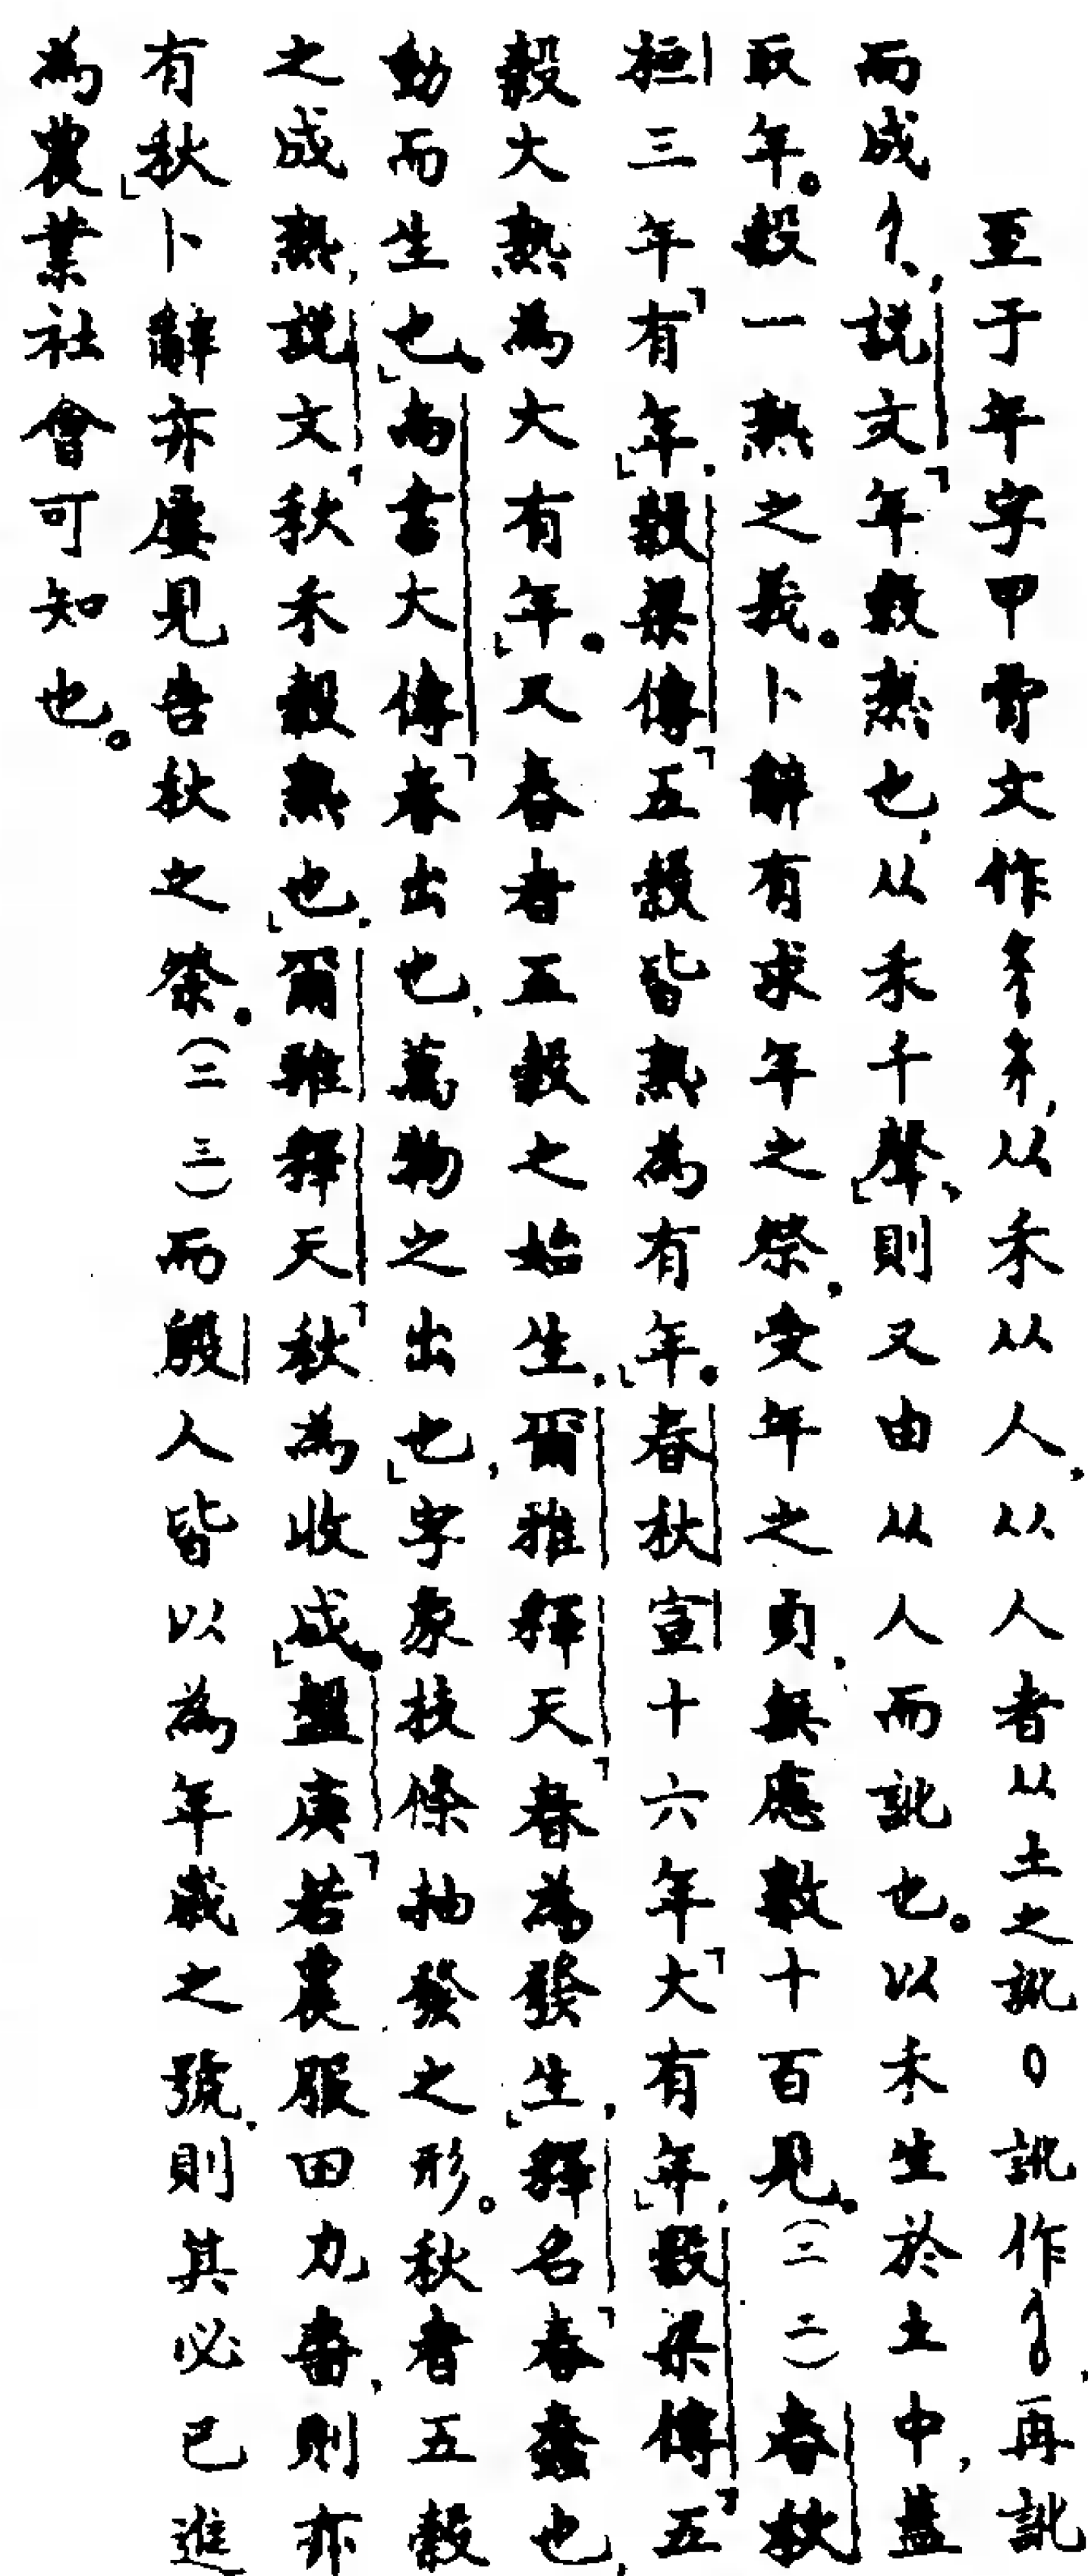 至于年字甲骨文作,从禾从人,从人者从土之訛。訛作,再訛
而成,說文「年穀熟也,从禾千聲」,則又由从人而訛也。以禾生於土中,蓋
取年。穀一熟之義。卜辭有求年之祭,受年之貞,無慮數十百見。(二二)春秋
桓三年「有年」,穀梁傳「五穀皆熟為有年」。春秋宣十六年「大有年」,穀梁傳「五
穀大熟為大有年」。又春者五穀之始生,爾雅釋天「春為發生」,釋名「春蠢也,
動而生也」。尚書大傳「春出也,萬物之出也」,字象枝條抽發之形。秋者五穀
之成熟,說文「秋禾穀熟也」,爾雅釋天「秋為收成」。盤庚「若農服田力嗇,則亦
有秋」卜辭亦屢見告秋之祭。(二三)而殷人皆以為年歲之號,則其必已進
為農業社會可知也。